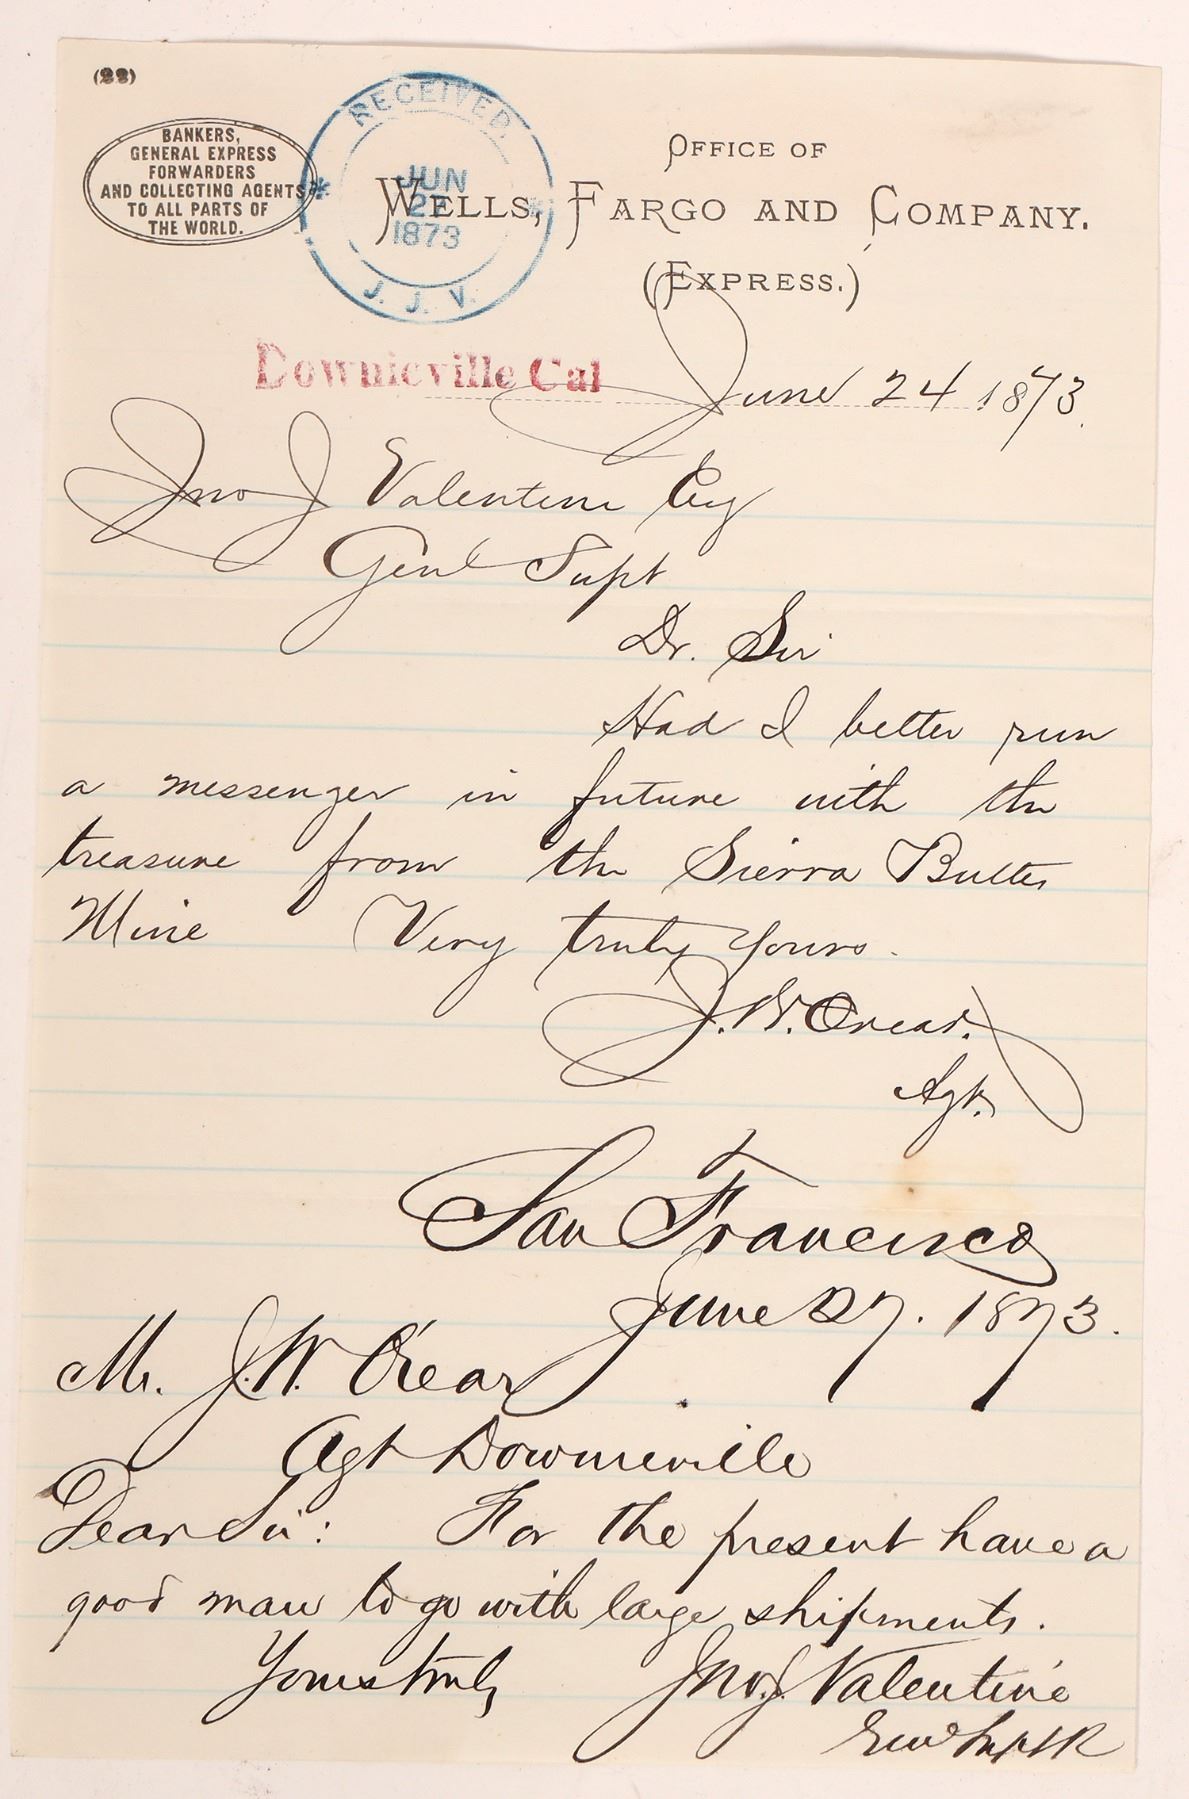 (22)
BANKERS,
GENERAL EXPRESS
FORWARDERS
AND COLLECTING AGENTS
TO ALL PARTS OF
THE WORLD.
RECEIVED.
JUN
27
1873
J. J. V.
OFFICE OF
WELLS, FARGO AND COMPANY.
(EXPRESS.)
Downieville Cal June 24 1873.
Jno J Valentine Esq
Genl Supt
Dr. Sir
Had I better run
a messenger in future with the
treasure from the Sierra Buttes
Mine Very truly Yours.
J. W. Orear.
Agt.
San Francisco
June 27. 1873.
Mr. J. W. Orear
Agt Downieville
Dear Sir: For the present have a
good man to go with large shipments.
Yours truly
Jno. J. Valentine
Genl Supt